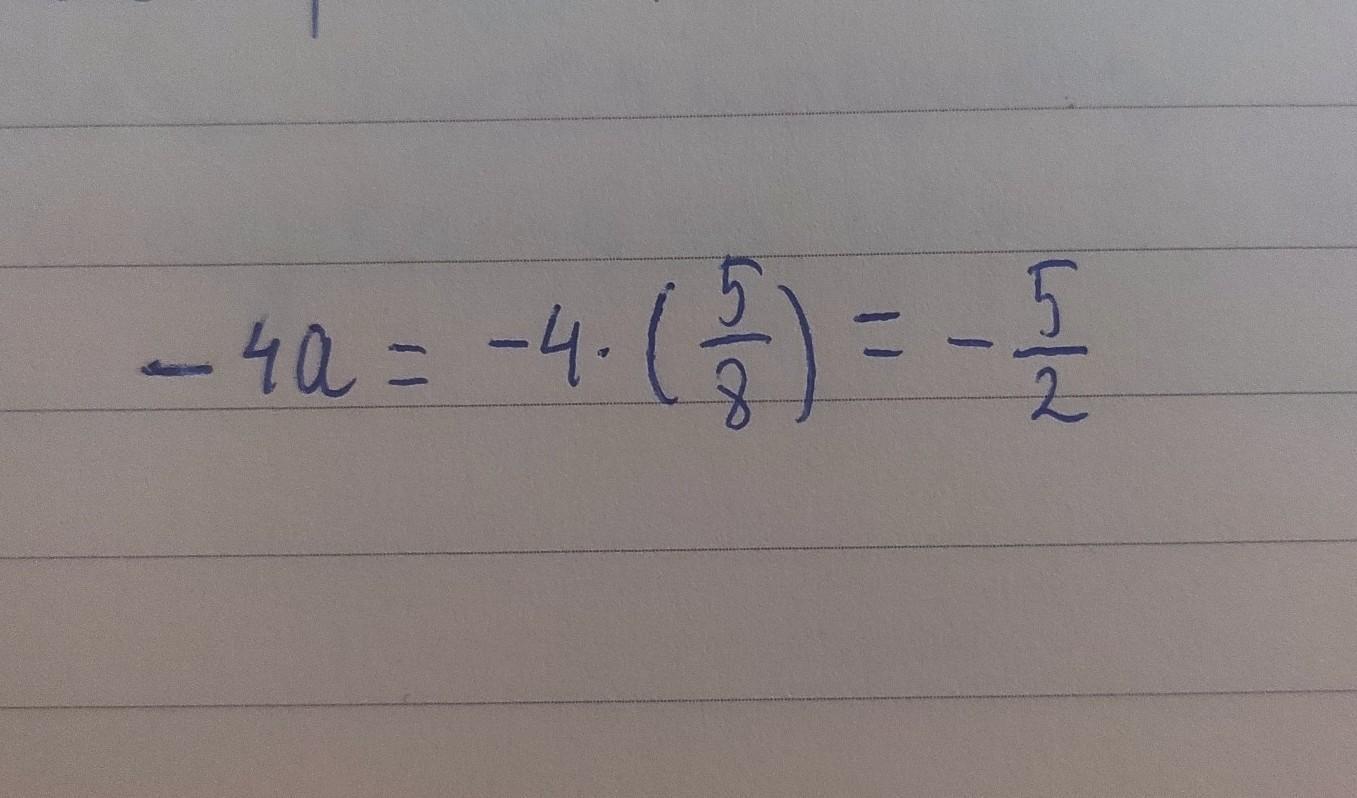 -4a = -4 · (5/8) = -5/2